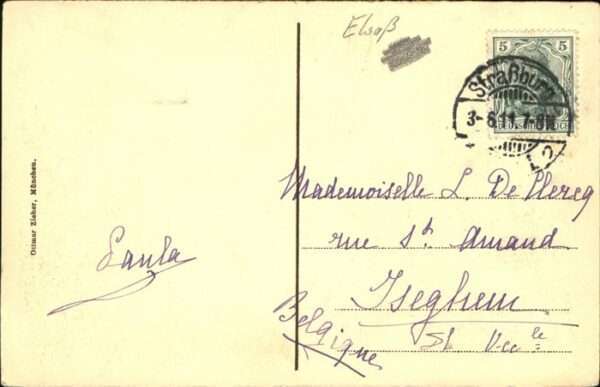 Elsaß
5 5
Straßburg
3-6.11.7-8N.
Mademoiselle L. De Clercq
rue St. Amand
Iseghem
Belgique
Fl. Occle
Paula
Ottmar Zieher, München.